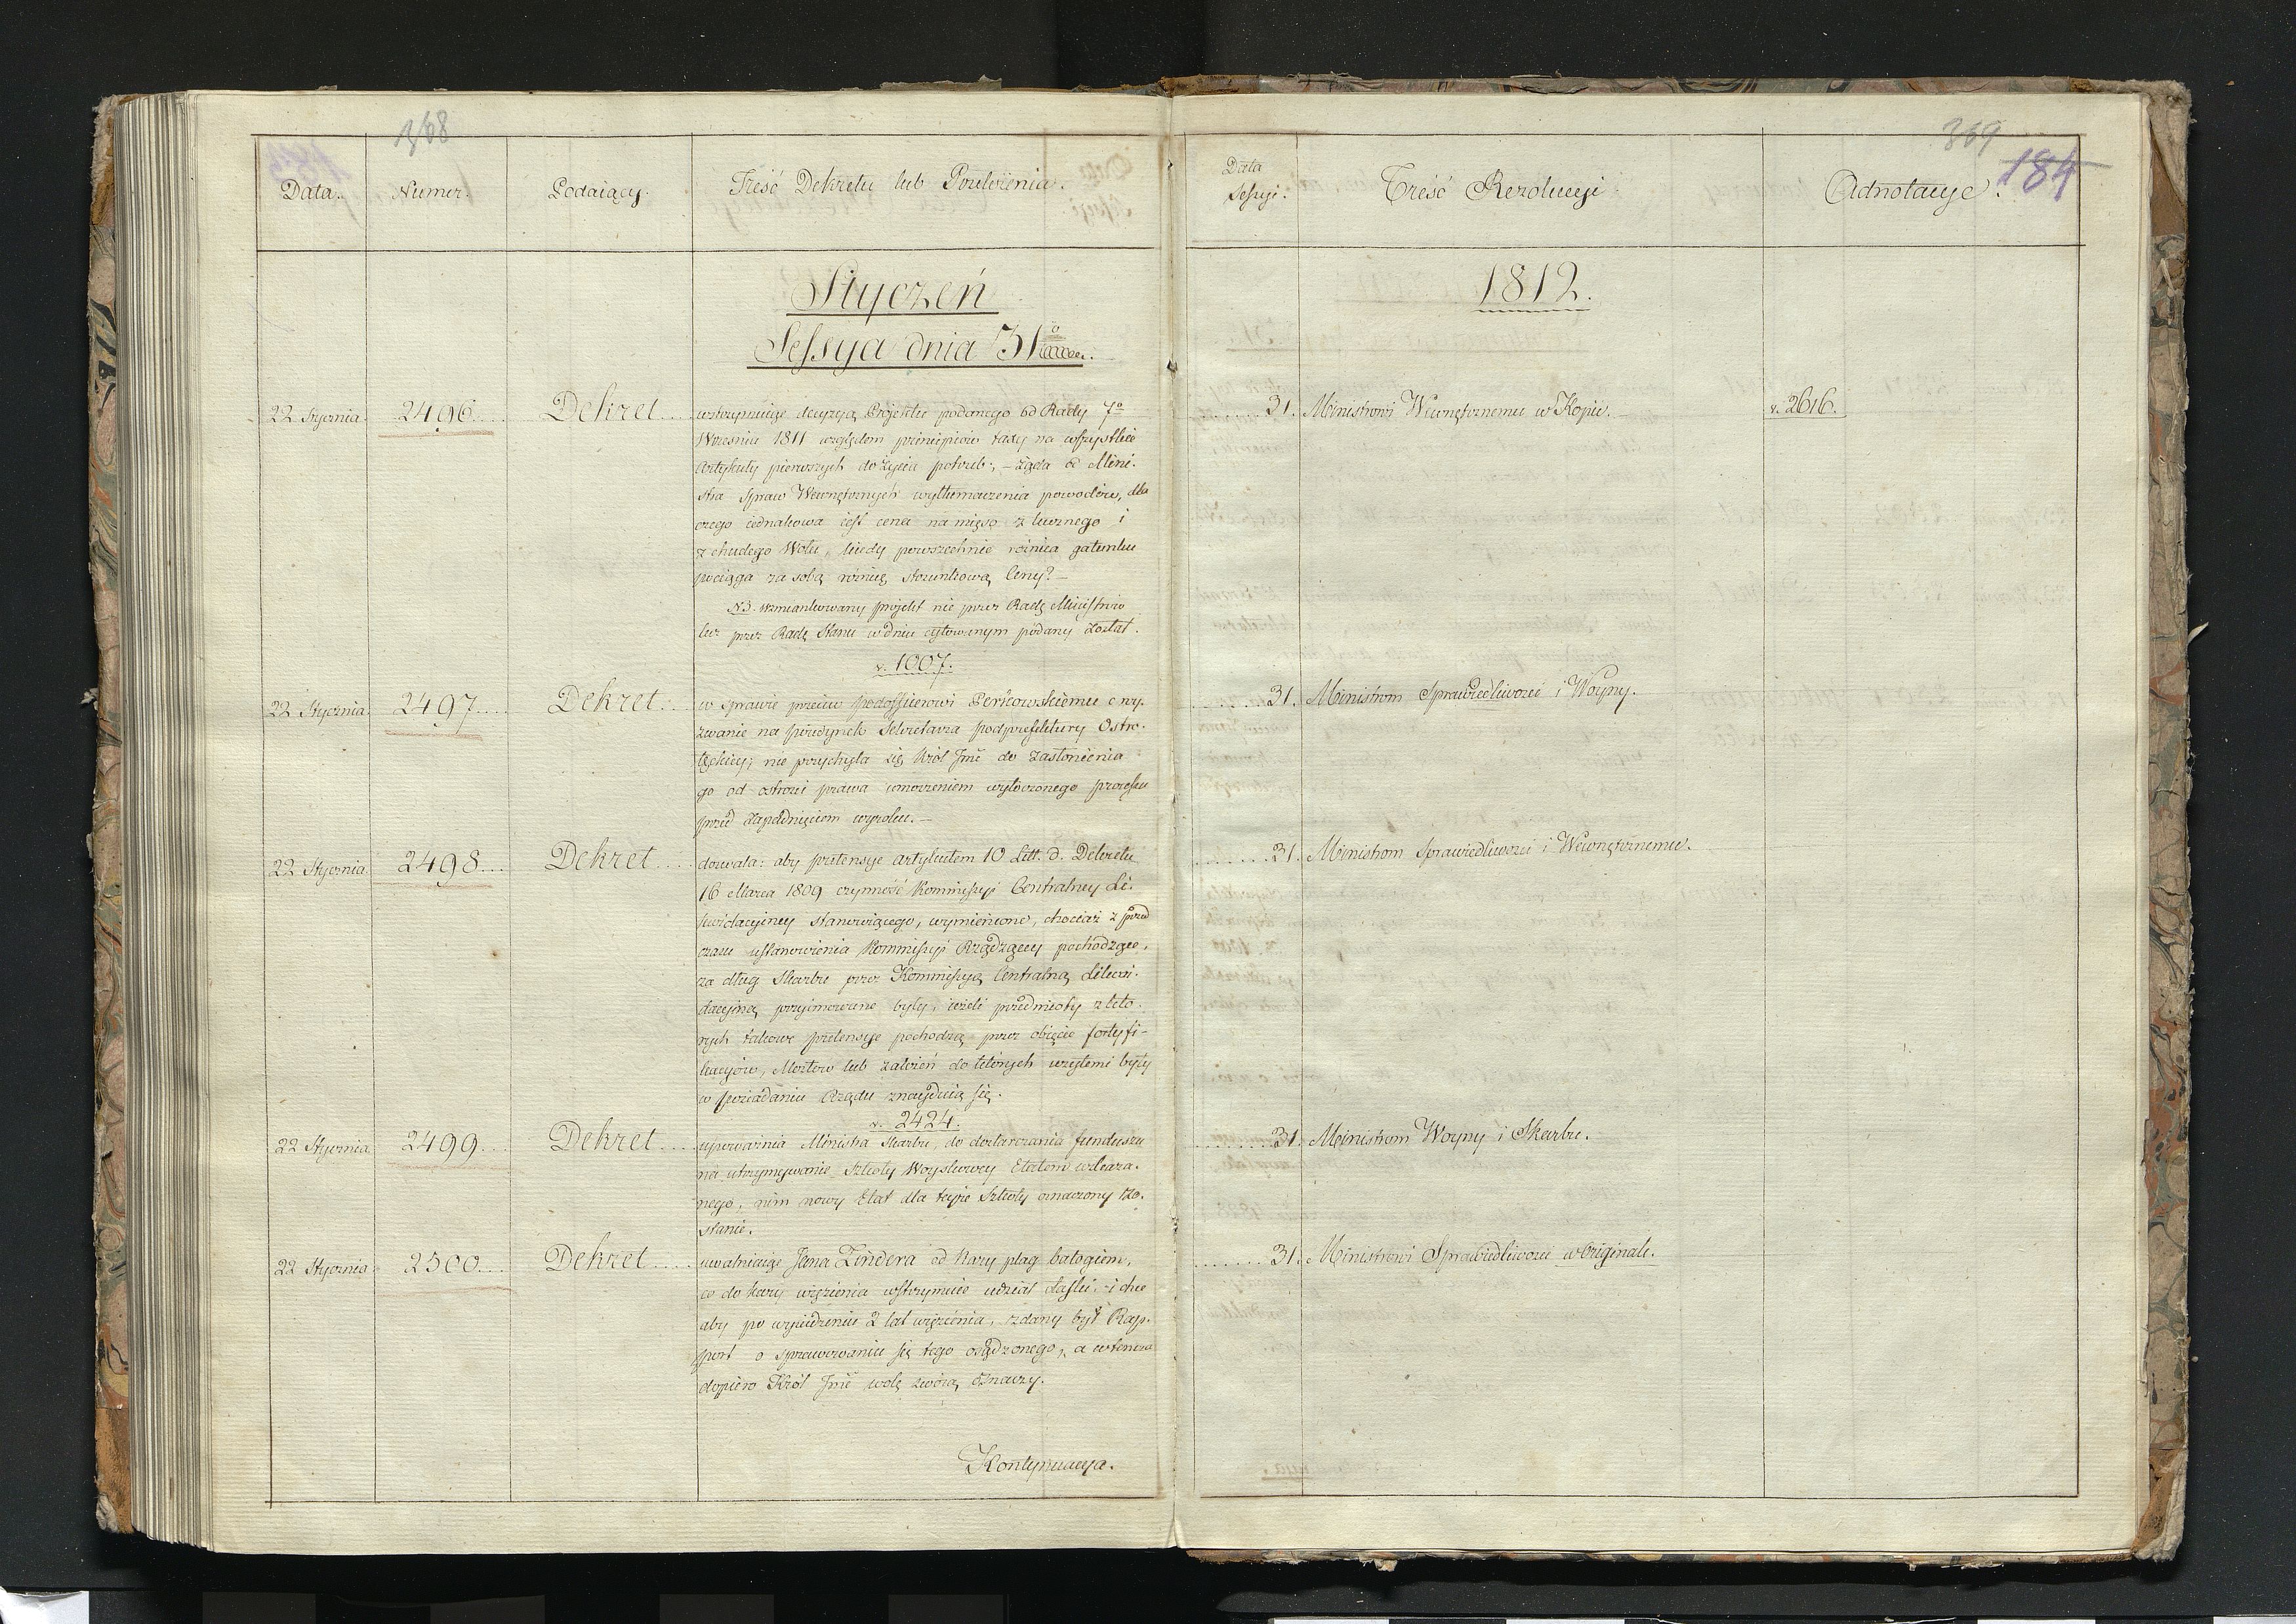 368
Data. Numer. Podaiący. Treść Dekretu lub Poulożenia.
Styczeń
Sessya dnia 31º
22 Stycznia. 2496 Dekret wstrzymuiąc decyzyą Projektu podanego od Rady 7º
Września 1811 względem principiów taxy na wszystkie
Artykuły pierwszych do życia potrzeb; – żąda od Mini-
stra Spraw Wewnętrznych wytłumaczenia powodów, dla
czego iednakowa iest cena na mięso z tucznego i
z chudego Wołu, kiedy powszechnie różnica gatunku
pociąga za sobą różnicę stosunkową Ceny? –
NB. wzmiankowany projekt nie przez Radę Ministrów
lecz przez Radę Stanu w dniu cytowanym podany został.
v. 1007.
22 Stycznia. 2497 Dekret w sprawie przeciw podofficerowi Perkowskiemu o wy-
zwanie na poiedynek Sekretarza Podprefektury Ostro-
łęckiey; nie przychyla się Król Jmć do zasłonienia
go od ostrości prawa umorzeniem wytoczonego processu
przed zapadnięciem wyroku. –
22 Stycznia 2498 Dekret dozwala: aby pretensye artykułem 10 Litt. d. Dekretu
16 Marca 1809 czynność Kommissyi Centralney Li-
kwidacyiney stanowiącego, wymienione, chociaż z przed
czasu ustanowienia Kommissyi Rządzącey pochodzące,
za dług Skarbu przez Kommissyą Centralną Likwi-
dacyiną przyimowane były, ieżeli przedmioty z któ-
rych takowe pretensye pochodzą przez obięcie fortyfi-
kacyiów, Mostów lub zakreń do których użytemi były
w posiadaniu Rządu znayduią się.
v. 2424.
22 Stycznia 2499 Dekret upoważnia Ministra Skarbu, do dostarczania funduszu
na utrzymywanie Szkoły Woyskowey Etatem wskaza-
nego, nim nowy Etat dla teyże Szkoły oznaczony zo-
stanie.
22 Stycznia 2500 Dekret uwalniaiąc Jana Zindera od kary plag batogiem,
co do kary więzienia wstrzymuie udział łaski, i chce
aby po wysiedzeniu 2 lat więzienia, zdany był Rap-
port o sprawowaniu się tego osądzonego, a wtenczas
dopiero Król Jmć wolę swoią oznaczy.
Kontynuacya.
369
184
Data
Sessyi. Treść Rezolucyi Adnotacye.
1812.
31. Ministrowi Wewnętrznemu w Kopii. v. 2616.
31. Ministrom Sprawiedliwości i Woyny.
31. Ministrom Sprawiedliwości i Wewnętrznemu.
31. Ministrom Woyny i Skarbu.
31. Ministrowi Sprawiedliwości w Originale.